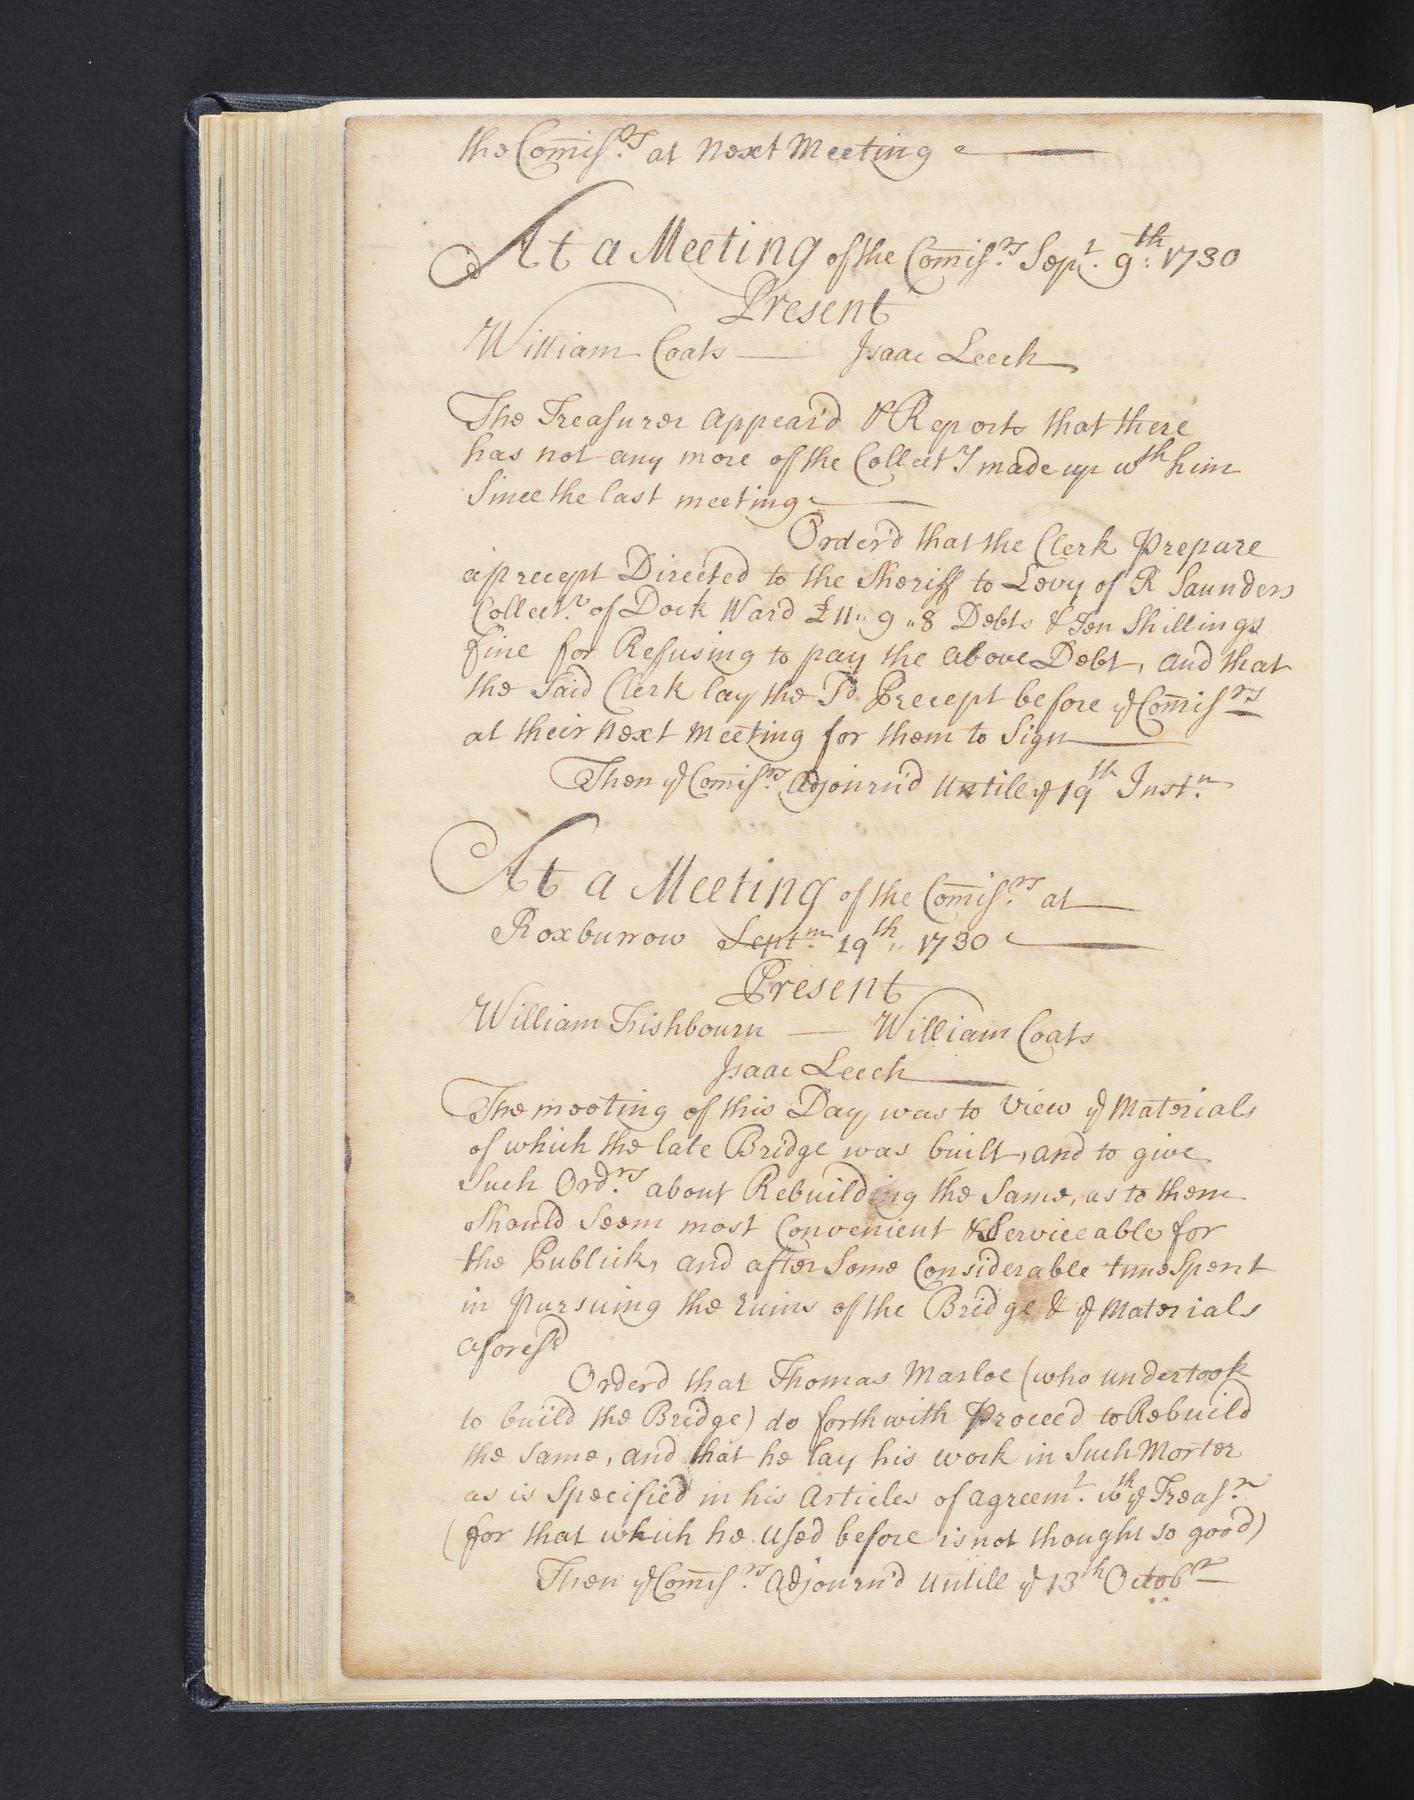 the Com̄iss.rs at next Meeting
At a Meeting of the Com̄iss.rs Sept. 9th: 1730
Present
William Coats — Isaac Leech
The Treasurer appear'd & Reports that there
has not any more of the Collectrs made up wth him
Since the last meeting
Order'd that the Clerk Prepare
a precept Directed to the Sheriff to Levy of R Saunders
Collect.r of Dock Ward £11 „ 9 „ 8 Debts & Ten Shillings
fine for Refusing to pay the above Debt, and that
the said Clerk lay the Sd Precept before ye Com̄issrs
at their next Meeting for them to Sign
Then ye Com̄iss.rs adjourn'd Untill ye 19th Inst.n
At a Meeting of the Com̄iss.rs at
Roxburrow Septm. 19th „ 1730
Present
William Fishbourn — William Coats
Isaac Leech
The meeting of this Day was to View ye Materials
of which the late Bridge was built, and to give
Such Ord.rs about Rebuilding the Same, as to them
Should Seem most Convenient & Serviceable for
the Publick, and after Some Considerable time Spent
in Pursuing the ruins of the Bridge & ye Materials
aforesd
Orderd that Thomas Marloe (who undertook
to build the Bridge) do forthwith Proceed to Rebuild
the Same, and that he lay his work in Such Morter
as is Specified in his Articles of agreemt. wth ye Treas.r
(for that which he Used before is not thought so good)
Then ye Com̄iss.rs adjourn'd Untill ye 13th Octobr